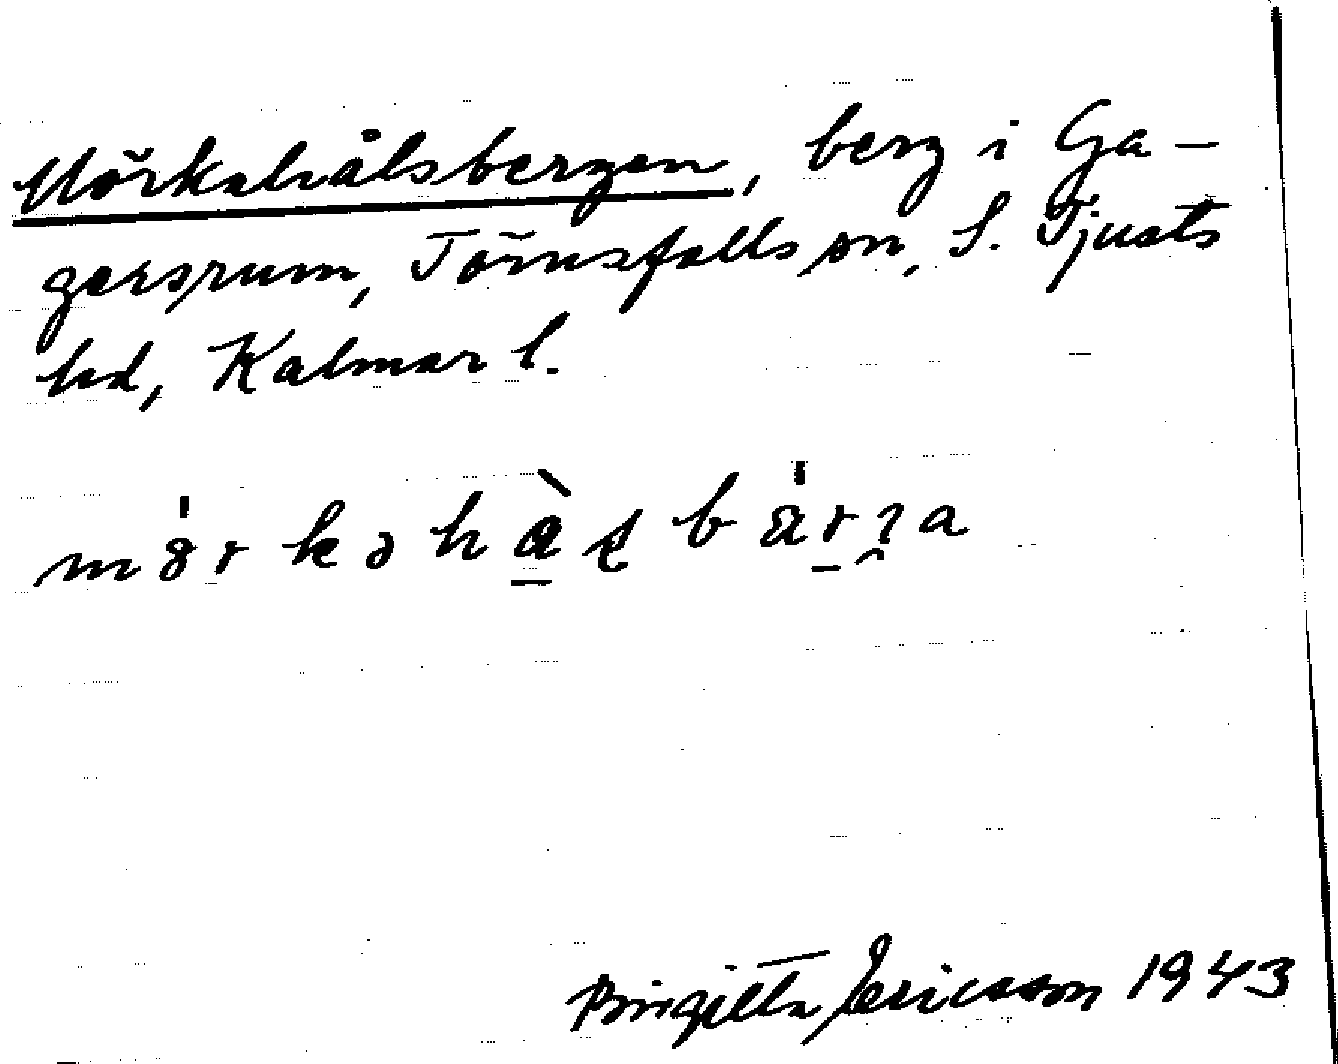 Mörkahålsbergen, berg i Ga-
gersrum, Törnsfalls sn, S. Tjusts
hd, Kalmar l.
Birgitta Ericsson 1943